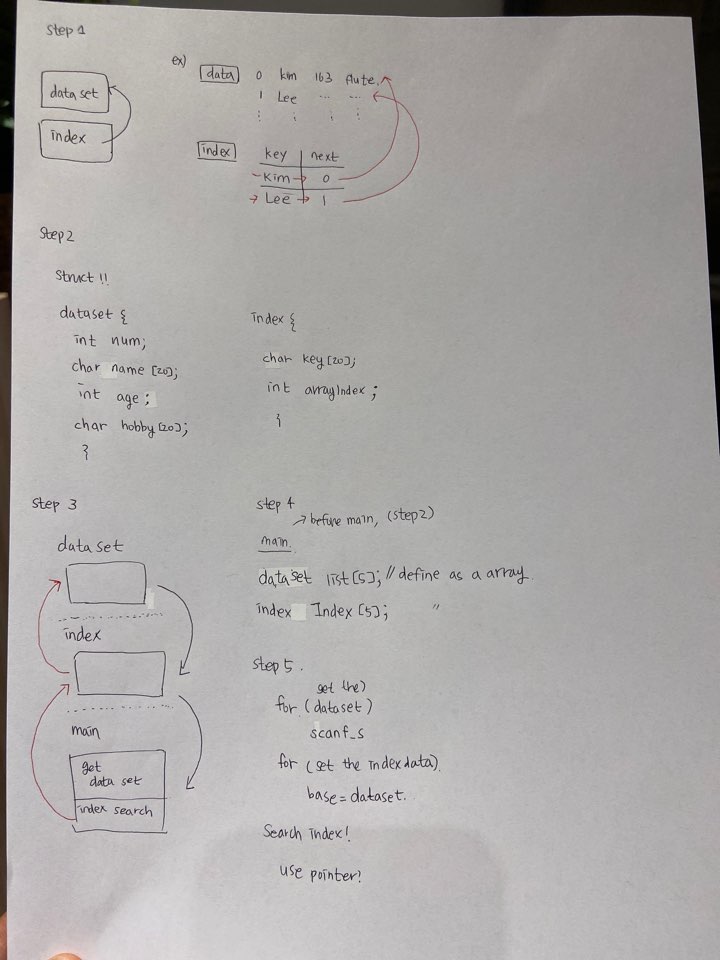 Step 1
data set
index
ex)
data 0 kim 163 flute.
1 Lee ... ...
index key next
Kim 0
Lee 1
Step2
struct !!
dataset {
int num;
char name [20];
int age ;
char hobby [20];
}
index {
char key [20];
int arrayIndex ;
}
step 3
data set
index
main
get
data set
index search
step 4
→ before main, (step2)
main.
dataset list [5]; // define as a array.
index Index [5]; "
step 5.
get the)
for (dataset)
scanf_s
for (set the index data).
base = dataset.
Search index!
use pointer?